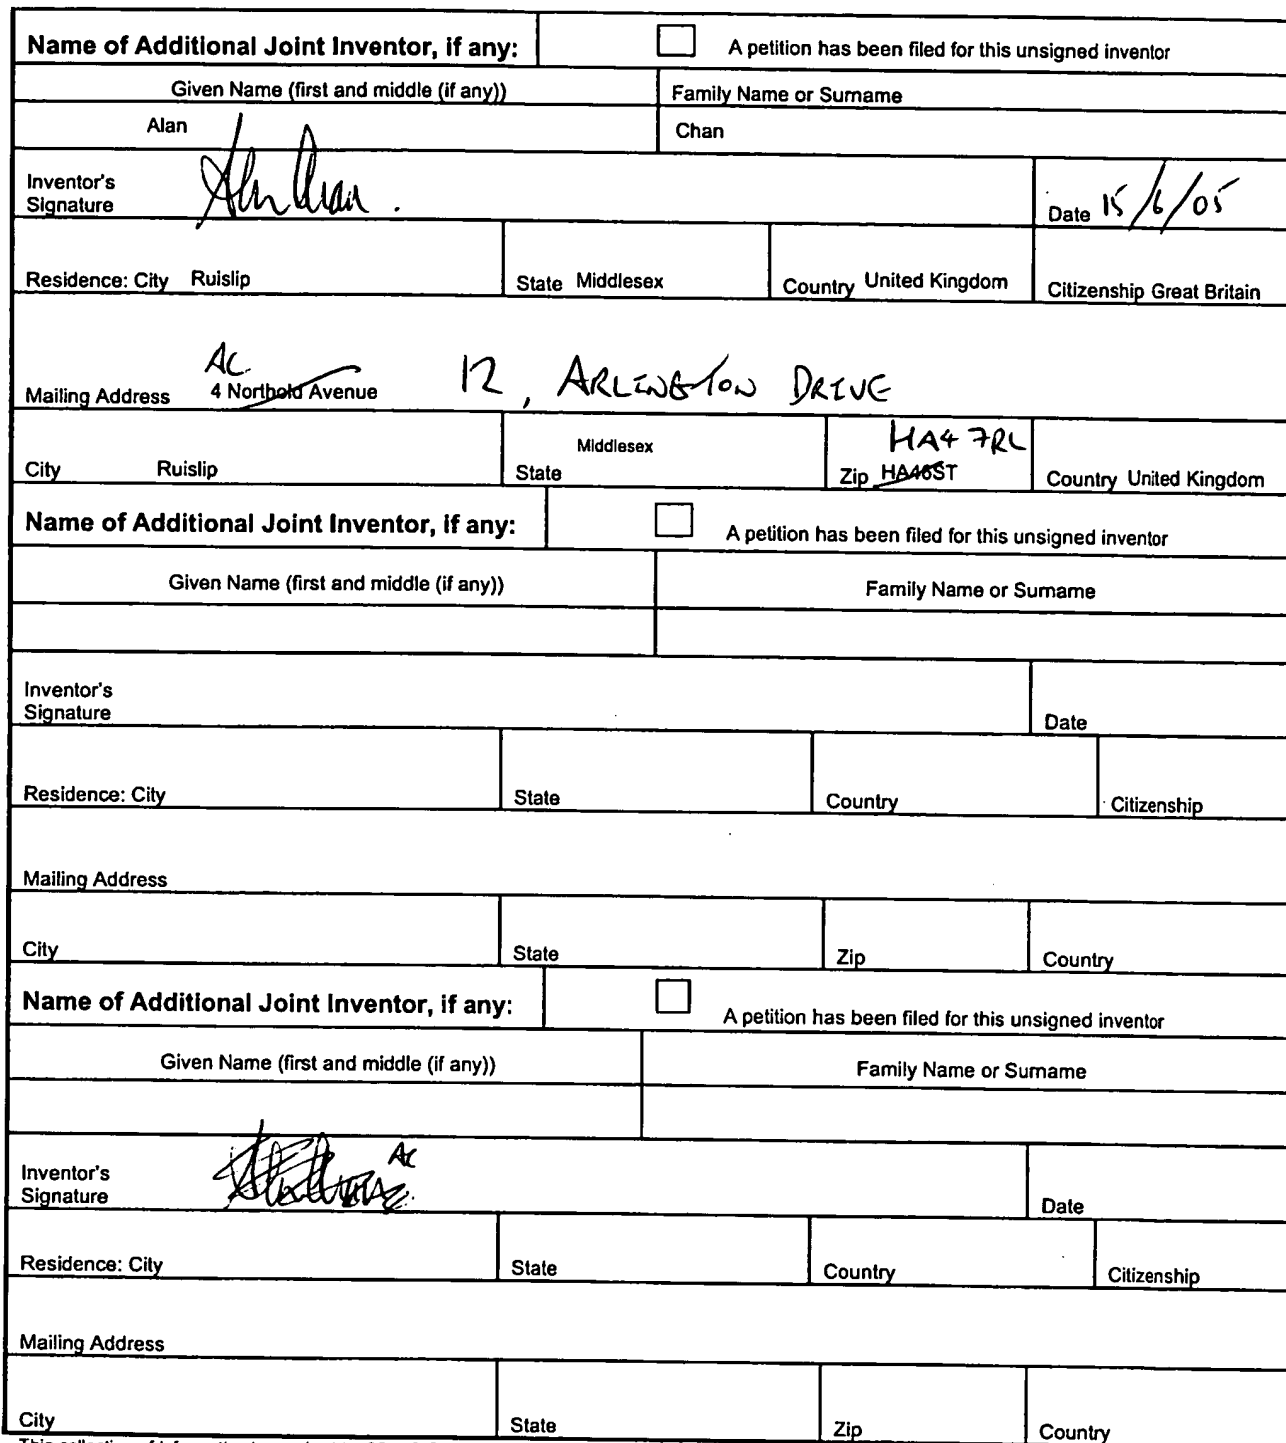 Name of Additional Joint Inventor, if any: A petition has been filed for this unsigned inventor
Given Name (first and middle (if any)) Family Name or Surname
Alan Chan
Inventor's
Signature Alan Chan . Date 15/6/05
Residence: City Ruislip State Middlesex Country United Kingdom Citizenship Great Britain
AC
Mailing Address 4 Northold Avenue 12, ARLINGTON DRIVE
Middlesex HA4 7RL
City Ruislip State Zip HA46ST Country United Kingdom
Name of Additional Joint Inventor, if any: A petition has been filed for this unsigned inventor
Given Name (first and middle (if any)) Family Name or Surname
Inventor's
Signature Date
Residence: City State Country Citizenship
Mailing Address
City State Zip Country
Name of Additional Joint Inventor, if any: A petition has been filed for this unsigned inventor
Given Name (first and middle (if any)) Family Name or Surname
AC
Inventor's
Signature Date
Residence: City State Country Citizenship
Mailing Address
City State Zip Country